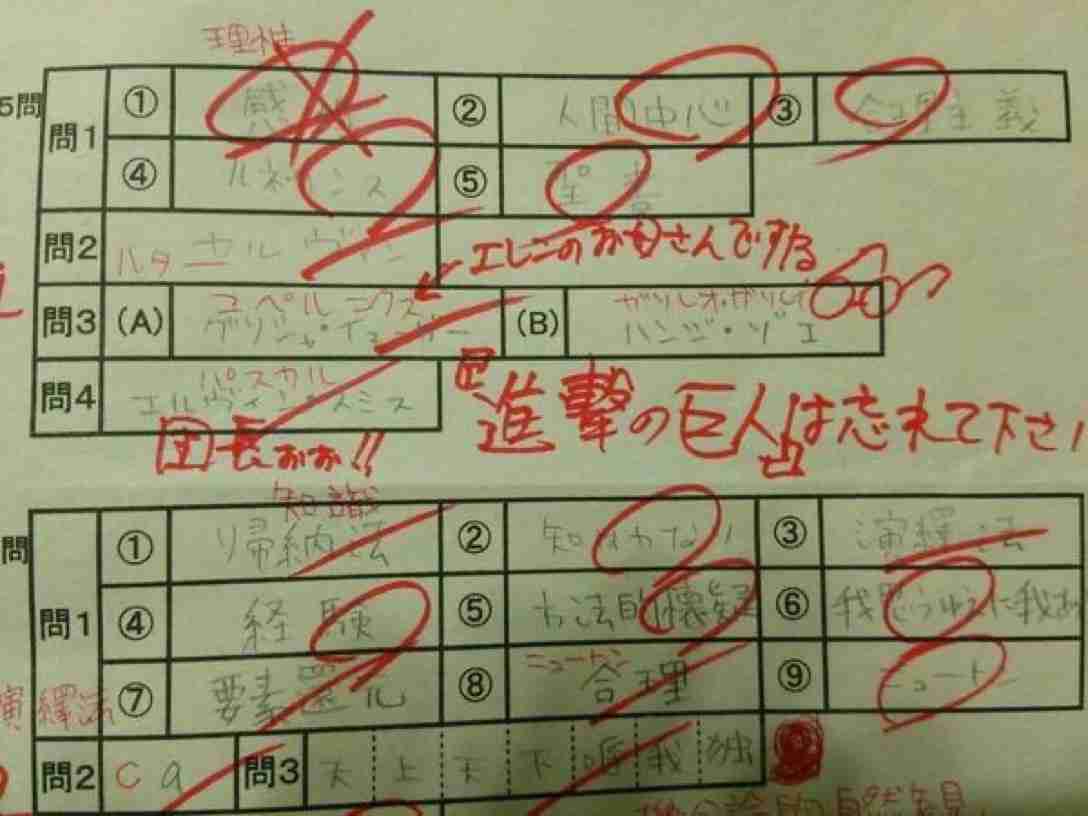 理性
5問 問1 ① ② 人間中心 ③ 合理主義
④ ルネサンス ⑤ 聖書
問2 ルター カルヴァン ←エレンのお母さんですね
コペルニクス ガリレオ・ガリレイ
問3 (A) グリシャ・イェーガー (B) ハンジ・ゾエ
パスカル
問4 エルヴィン・スミス
団長おぉ!!
進撃の巨人は忘れて下さい
知識
問 問1 ① 帰納法 ② 知は力なり ③ 演繹法
④ 経験 ⑤ 方法的懐疑 ⑥ 我思うゆえに我あ
ニュートン
演繹法 ⑦ 要素還元 ⑧ 合理 ⑨ ニュートン
問2 c a 問3 天上天下唯我独